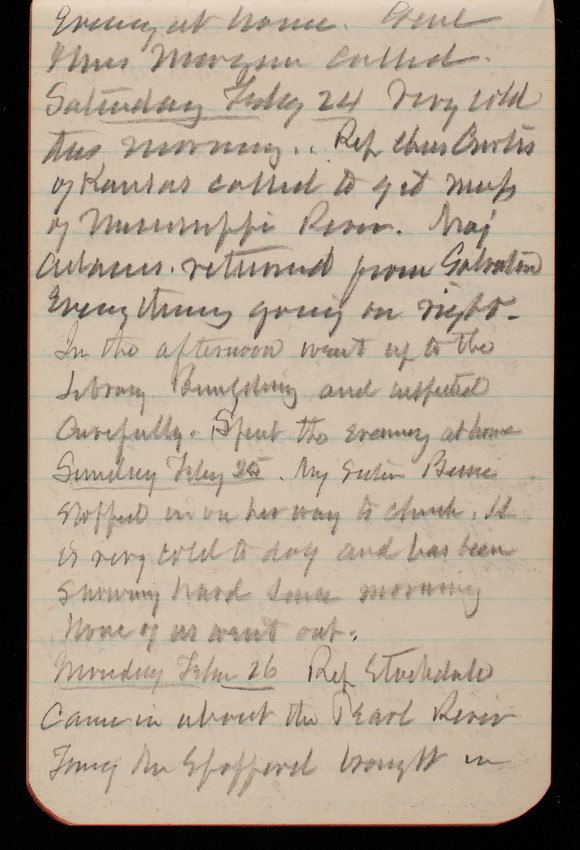 Evening at home. Genl
& Mrs Morgan called.
Saturday Feby 24 Very cold
this morning. Rep Chas Curtis
of Kansas called to get maps
of Mississippi River. Maj
Adams returned from Galveston
Everything going on right.
In the afternoon went up to the
Library Building and inspected
Carefully. Spent the evening at home
Sunday Feby 25. My Sister
stopped in on her way to church. It
is very cold to day and has been
snowing hard since morning
None of us went out.
Monday Feby 26 Rep Stockdale
Came in about the Pearl River
Spofford brought in